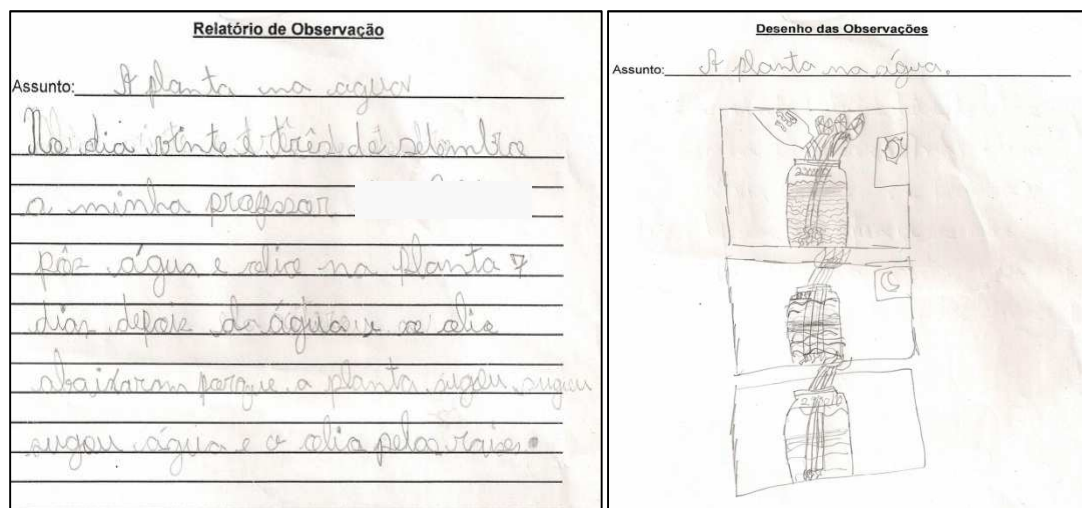 Relatório de Observação
Assunto: A planta na agua
No dia vinte e três de setembro
a minha professor
pôz água e olio na planta 7
dias depois da água e o olio
abaixaram porque a planta sugou, sugou
sugou água e o olio pelas raises.
Desenho das Observações
Assunto: A planta na água.